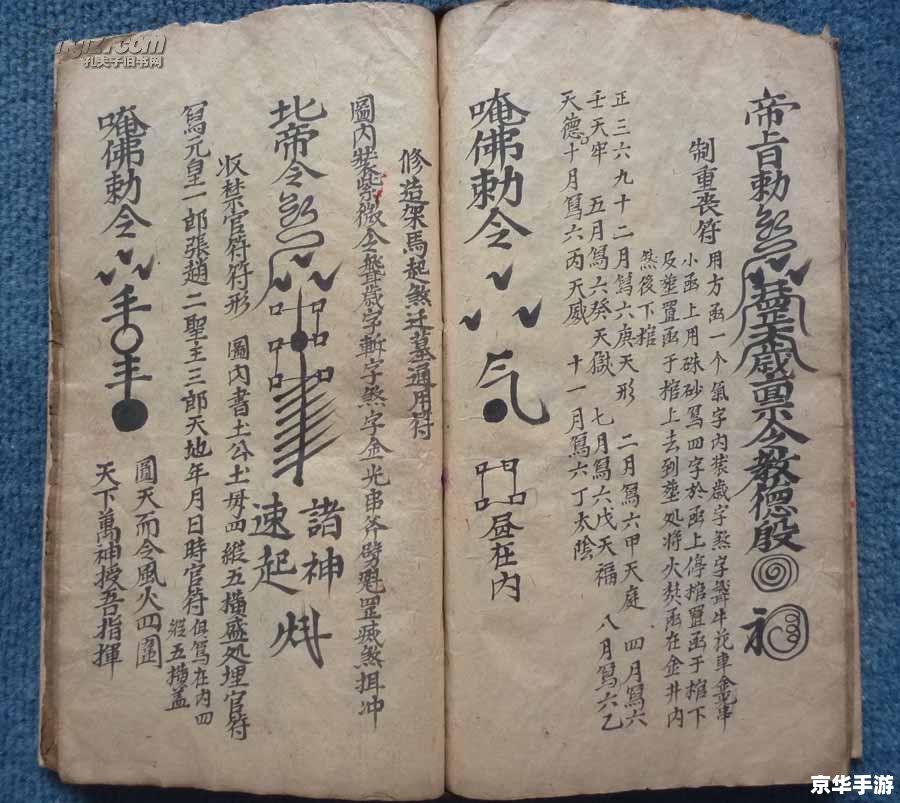 帝旨勅歲票令教德殷
制重丧符
用方函一个氣字内裝歲字煞字牛花車金串
小函上用硃砂寫四字於函上停棺置函于棺下
及塟置函于棺上去到塟処将火焚函在金井内
然後下棺
正三六九十二月寫六庚天形 二月寫六甲天庭 四月寫六
壬天牢 五月寫六癸天獄 七月寫六戊天福 八月寫六乙
天德 十月寫六丙天威 十一月寫六丁太陰
唵佛勅令
昼在内
修造架馬起煞迁墓通用符
圖内裝紫微令歲字斬字煞字金光串斧劈魁罡威煞揖冲
北帝令
諸神
速起
収禁官符符形 圖内書土公土母四縦五横盛処埋官符
寫元皇一郎張趙二聖王三郎天地年月日時官符俱寫在内四
縦五横盖
唵佛勅令
圓天而令風火四圍
天下萬神授吾指揮
孔夫子旧书网
京华手游